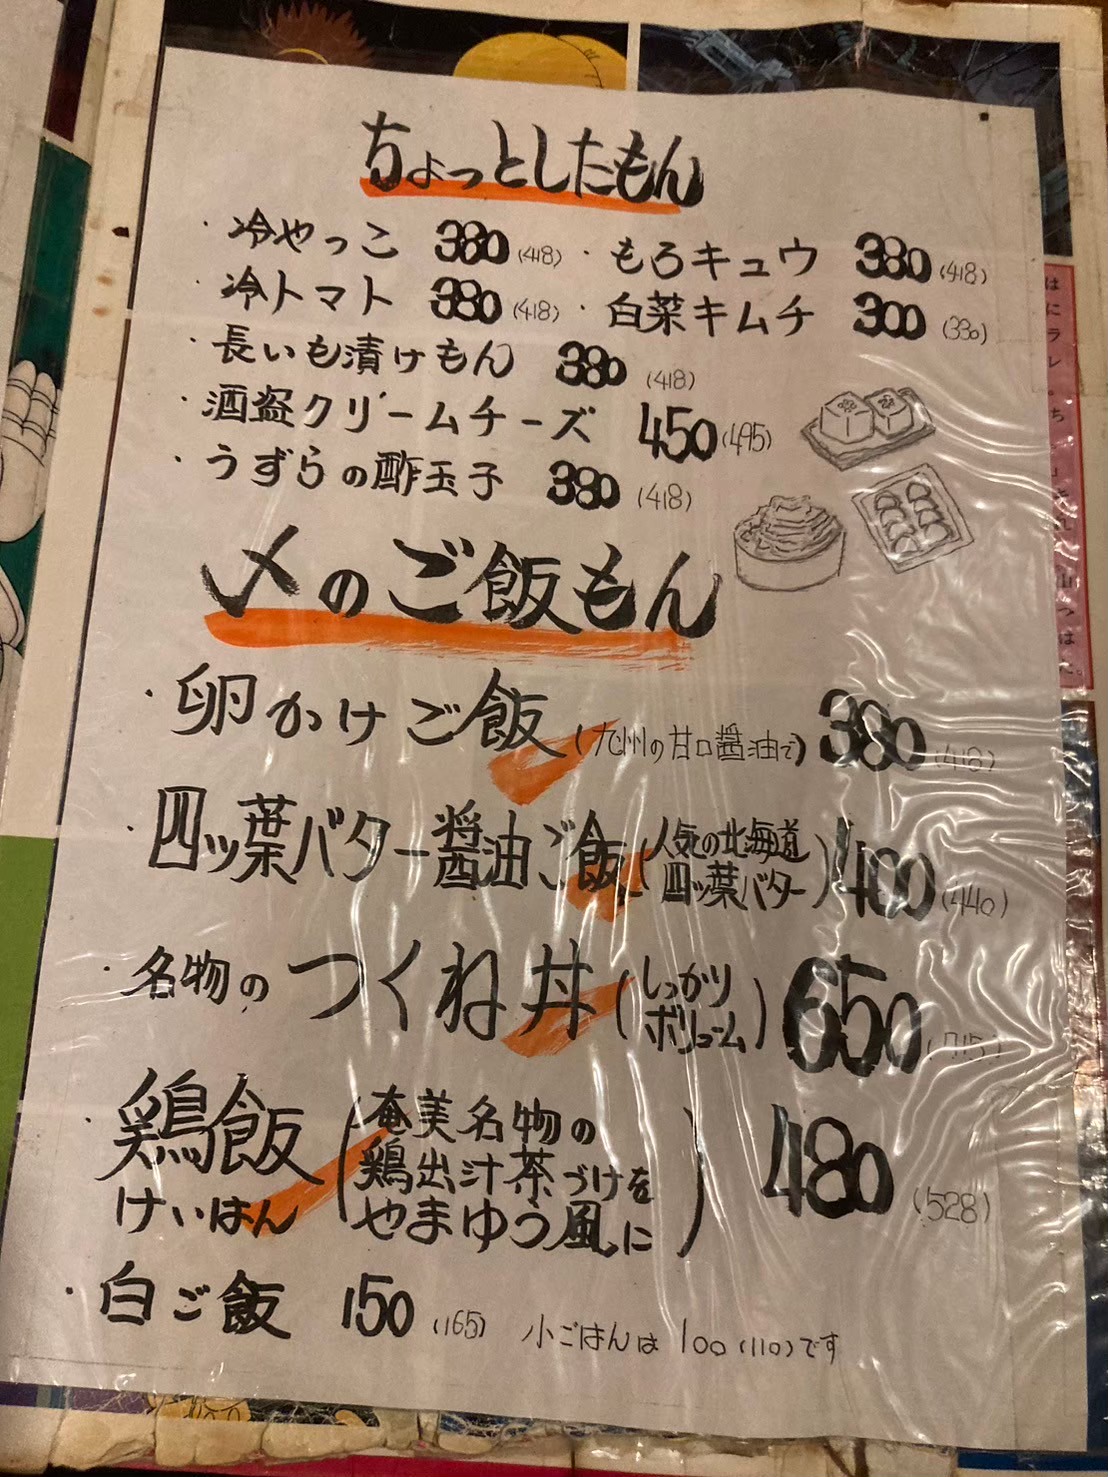 ちょっとしたもん
・冷やっこ 380(418) ・もろキュウ 380(418)
・冷トマト 380(418) ・白菜キムチ 300(330)
・長いも漬けもん 380(418)
・酒盗クリームチーズ 450(495)
・うずらの酢玉子 380(418)
〆のご飯もん
・卵かけご飯(九州の甘口醤油で) 380(418)
・四ッ葉バター醤油ご飯(人気の北海道四ッ葉バター) 400(440)
・名物のつくね丼(しっかりボリューム) 650(715)
・鶏飯 けいはん(奄美名物の鶏出汁茶づけをやまゆう風に) 480(528)
・白ご飯 150(165) 小ごはんは100(110)です